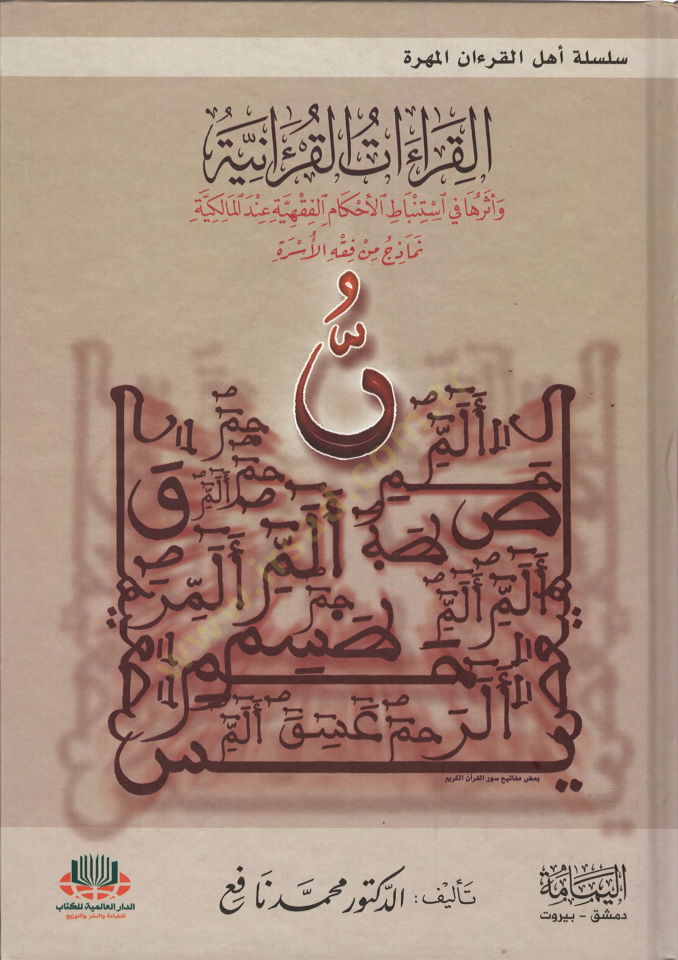 سلسلة أهل القرءان المهرة
القِرَاءَاتُ القُرْءَانِيَّةُ
وَأَثَرُهَا فِي اسْتِنْبَاطِ الأَحْكَامِ الفِقْهِيَّةِ عِنْدَ المَالِكِيَّةِ
نَمَاذِجُ مِنْ فِقْهِ الأُسْرَةِ
نّ
الٓمٓ
حمٓ
حمٓ
الٓمٓ
كٓهيعٓصٓ
قٓ
صٓ
طه
الٓمٓ
الٓمٓرٰ
الٓمٓ
الٓمٓ
حمٓ
طسٓمٓ
حمٓ
الٓر
حمٓ
عٓسٓقٓ
الٓمٓ
يسٓ
بعض مفاتيح سور القرآن الكريم
تأليف: الدكتور محمد نافع
اليمامة
دمشق - بيروت
الدار العالمية للكتاب
للطباعة والنشر والتوزيع